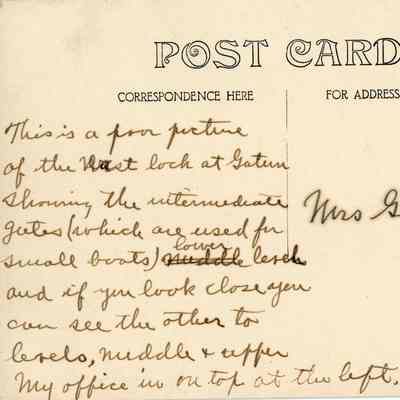 POST CARD
CORRESPONDENCE HERE
FOR ADDRESS
This is a poor picture
of the West lock at Gatun
showing the intermediate
gates (which are used for
small boats) middle lower level
and if you look close you
can see the other to
levels, middle & upper
My office is on top at the left.
Mrs G